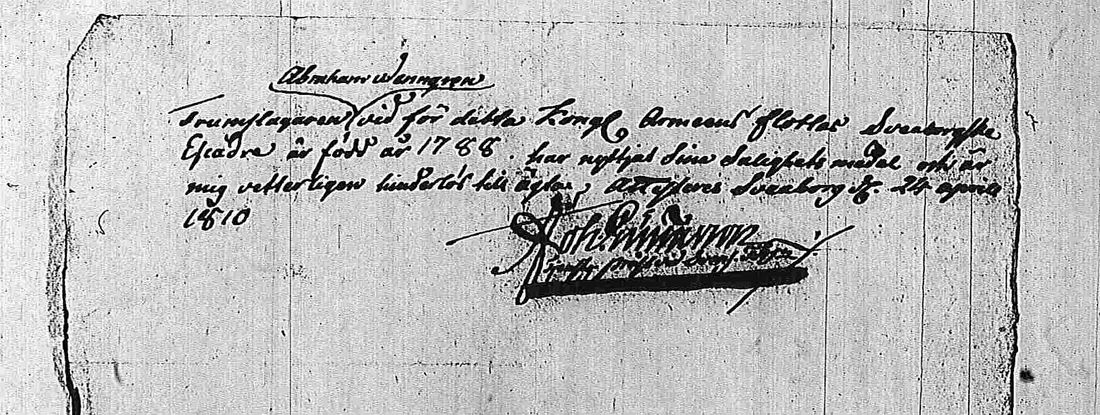 Abraham Wenngren
Trumslagaren vid för detta Kongl Armeens flottas Sveaborgske
Escadre är född år 1788. har nyttjat Sine Salighets medel och är
mig vetterligen hinderlös till ägta, Attesteres Sveaborg d. 24 april
1810
Joh